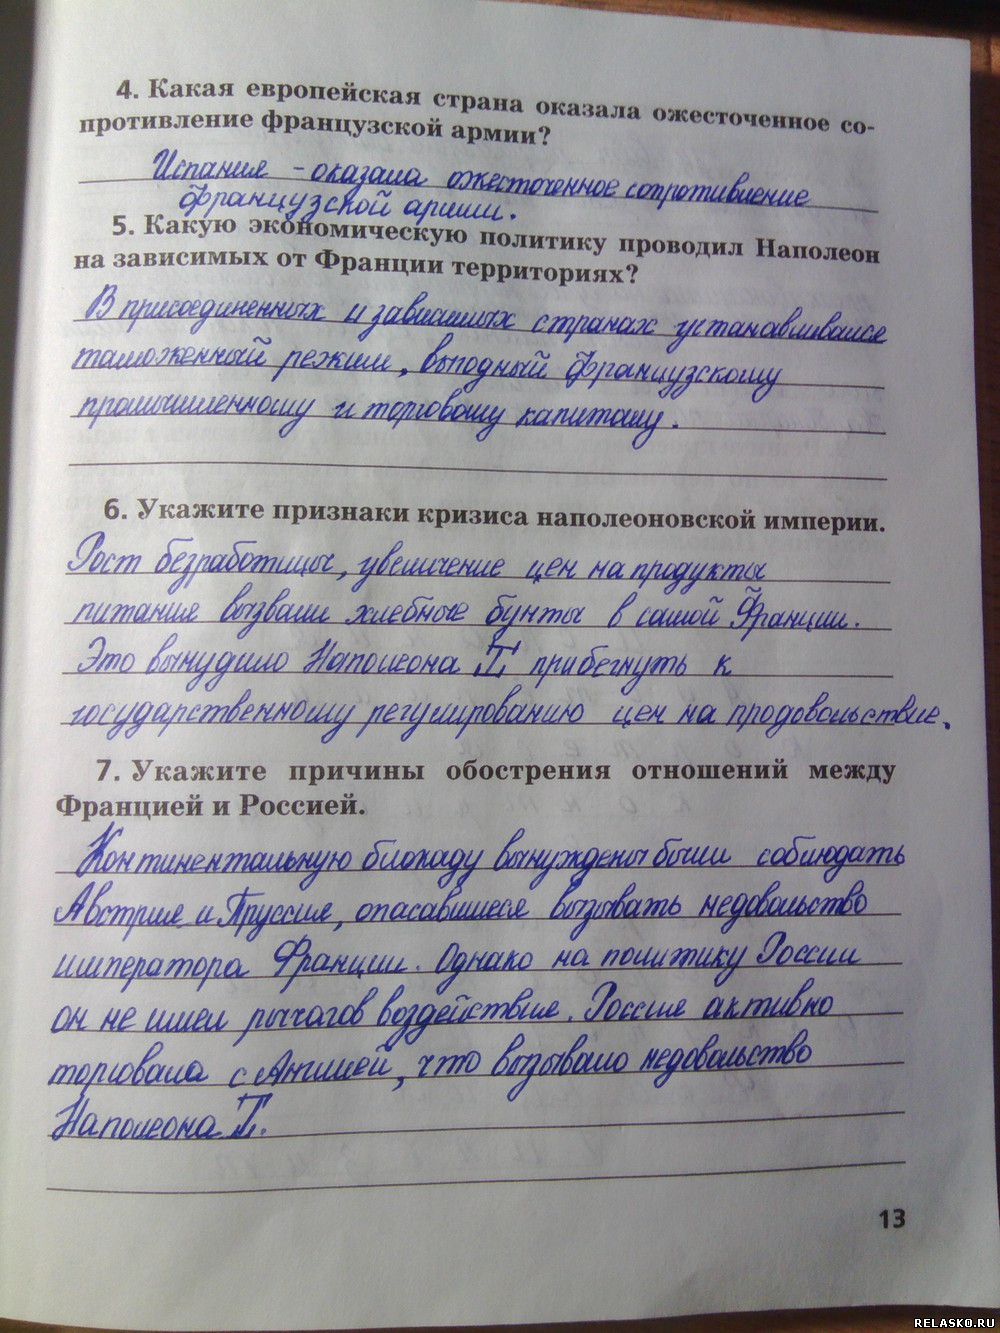 4. Какая европейская страна оказала ожесточенное со-
противление французской армии?
Испания - оказала ожесточенное сопротивление
французской армии.
5. Какую экономическую политику проводил Наполеон
на зависимых от Франции территориях?
В присоединенных и зависимых странах устанавливался
таможенный режим, выгодный французскому
промышленному и торговому капиталу.
6. Укажите признаки кризиса наполеоновской империи.
Рост безработицы, увеличение цен на продукты
питания вызвали хлебные бунты в самой Франции.
Это вынудило Наполеона I прибегнуть к
государственному регулированию цен на продовольствие.
7. Укажите причины обострения отношений между
Францией и Россией.
Континентальную блокаду вынуждены были соблюдать
Австрия и Пруссия, опасавшиеся вызывать недовольство
императора Франции. Однако на политику России
он не имел рычагов воздействия. Россия активно
торговала с Англией, что вызывало недовольство
Наполеона I.
13
RELASKO.RU